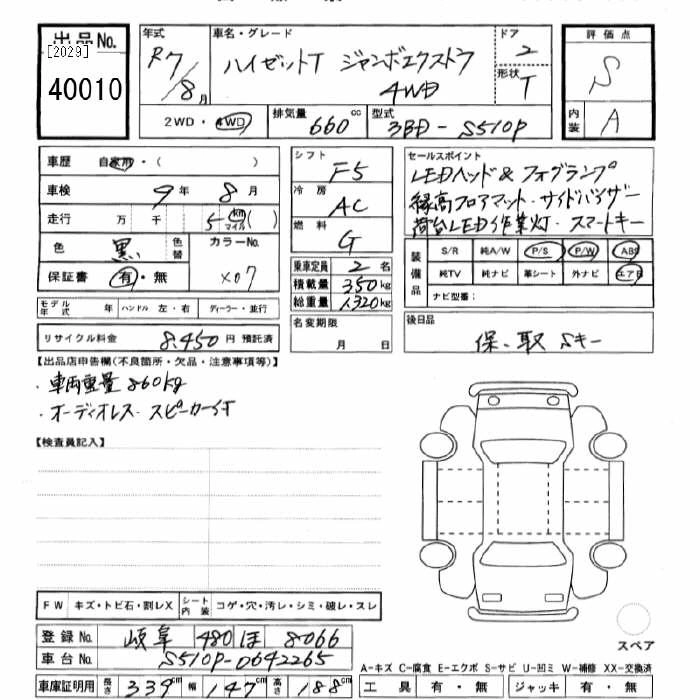 出品No.
[2029]
40010
年式
R7/8月
車名・グレード
ハイゼットT ジャンボエクストラ
4WD
ドア
2
形状
T
評価点
S
内装
A
2WD・4WD
排気量
660 cc
型式
3BD-S510P
車歴 自家用・( )
車検 9年 8月
走行 万 千 5 km マイル ( )
色 黒 色替
カラーNo.
X07
保証書 有・無
モデル年式 年 ハンドル 左・右 ディーラー・並行
リサイクル料金 8,450円 預託済
シフト
F5
冷房
AC
燃料
G
乗車定員 2名
積載量 350kg
総重量 1,320kg
名変期限
月 日
セールスポイント
LEDヘッド& フォグランプ
縁高フロアマット・サイドバイザー
荷台LED作業灯・スマートキー
装備品
S/R 純A/W P/S P/W ABS
純TV 純ナビ 革シート 外ナビ エアB
ナビ型番:
後日品
保、取 Sキー
【出品店申告欄(不良箇所・欠品・注意事項等)】
・車両重量 860kg
・オーディオレス・スピーカー付
【検査員記入】
FW キズ・トビ石・割レX
シート内装 コゲ・穴・汚レ・シミ・破レ・スレ
登録No. 岐阜 480 ほ 8066
車台No. S510P-0642265
車庫証明用 長さ 339cm 幅 147cm 高さ 188cm
スペア
A-キズ C-腐食 E-エクボ S-サビ U-凹ミ W-補修 XX-交換済
工具 有・無 ジャッキ 有・無